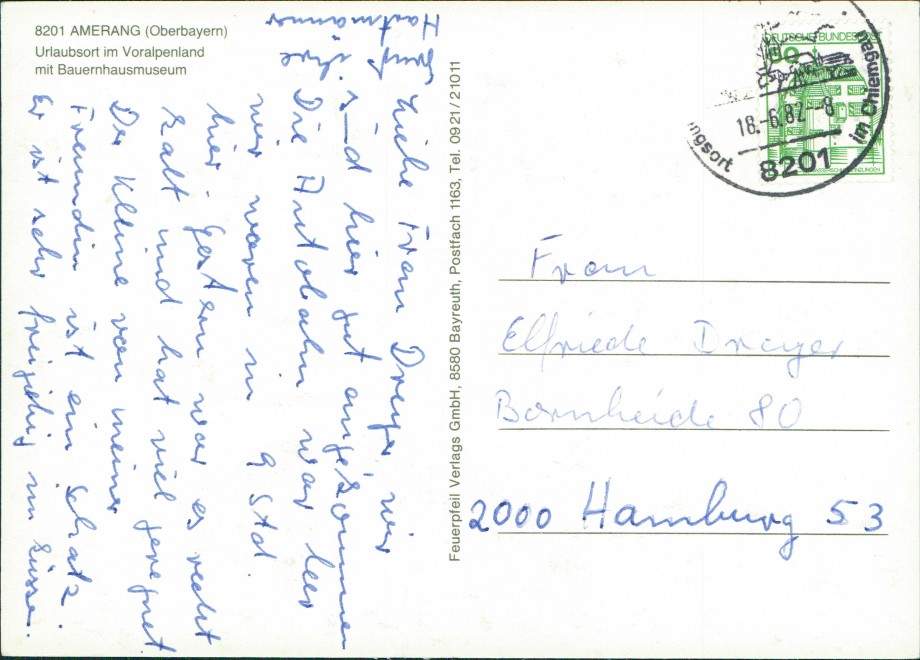 8201 AMERANG (Oberbayern)
Urlaubsort im Voralpenland
mit Bauernhausmuseum
Liebe Frau Dreyer, wir
sind hier gut angekommen
Die Autobahn war leer
wir waren in 9 Std.
hier. Gestern war es recht
kalt und hat viel geregnet
Der Kleine von meiner
Freundin ist ein Schatz.
Er ist sehr freigiebig im Küssen.
Gruß
Ihre
Hartmanner
Feuerpfeil Verlags GmbH, 8580 Bayreuth, Postfach 1163, Tel. 0921/21011
DEUTSCHE BUNDESPOST
18.-6.82-8
8201
im Chiemgau
Frau
Elfriede Dreyer
Bornheide 80
2000 Hamburg 53